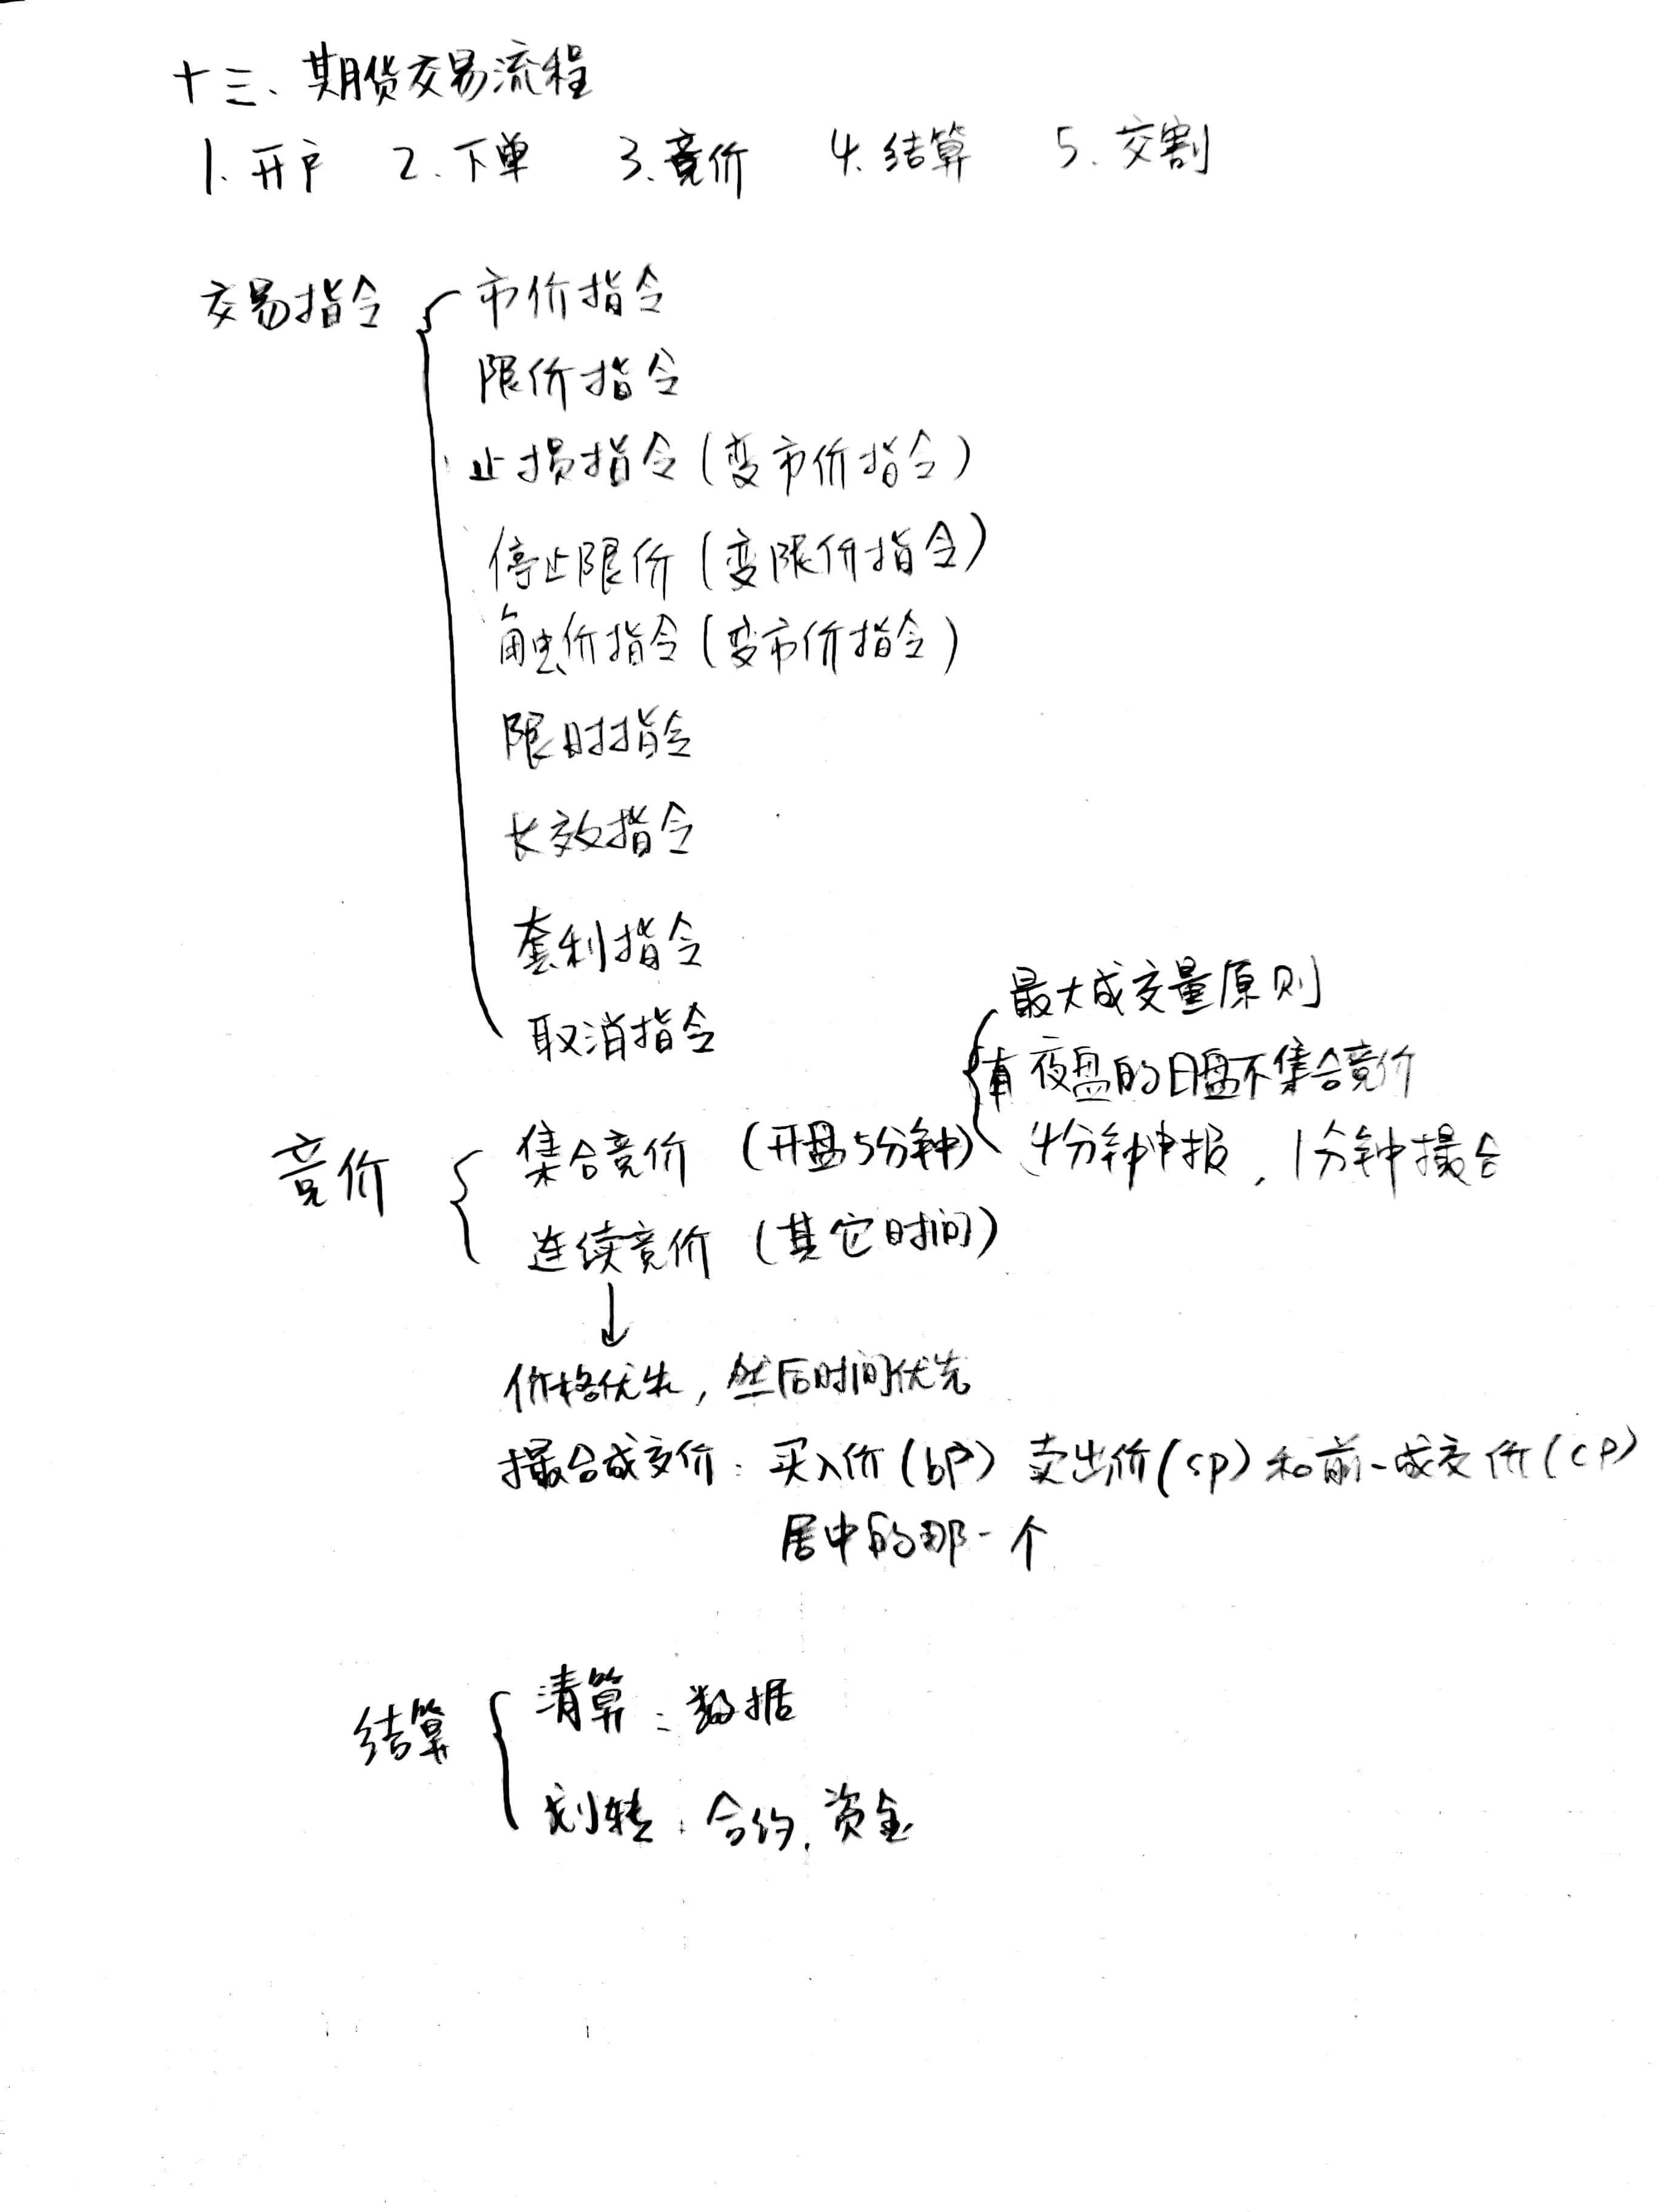 十三、期货交易流程
1.开户 2.下单 3.竞价 4.结算 5.交割
交易指令
市价指令
限价指令
止损指令(变市价指令)
停止限价(变限价指令)
触价指令(变市价指令)
限时指令
长效指令
套利指令
取消指令
竞价
集合竞价 (开盘5分钟)
最大成交量原则
有夜盘的日盘不集合竞价
4分钟申报,1分钟撮合
连续竞价 (其它时间)
↓
价格优先,然后时间优先
撮合成交价:买入价(bp) 卖出价(sp)和前一成交价(cp)
居中的那一个
结算
清算:数据
划转:合约,资金